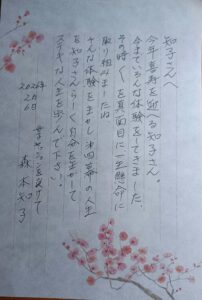 知子さんへ
今年喜寿を迎へる知子さん。
今までいろんな体験をしてきました。
その時々を真面目に一生懸命に
取り組みましたね
そんな体験を生かし 第四幕の人生
を知子さんらしく自分を生かして
ステキな人生を歩んで下さい。
2026年
2月6日
森本知子